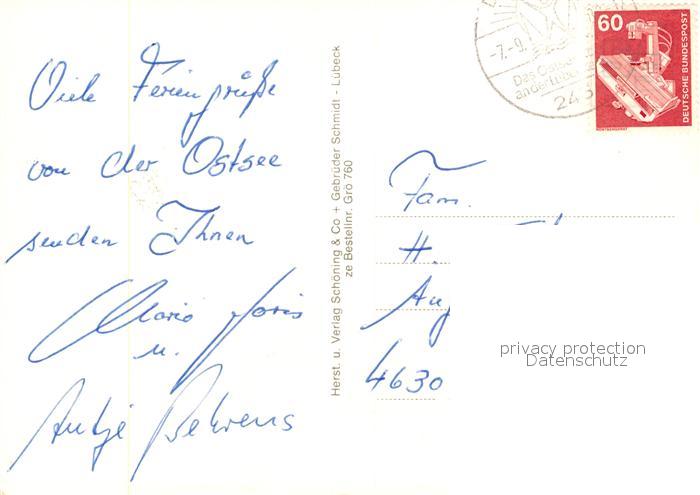 Viele Feriengrüße
von der Ostsee
senden Ihnen
Mario Joris
u.
Antje Behrens
Herst. u. Verlag Schöning & Co + Gebrüder Schmidt - Lübeck
ze Bestellnr. Grö 760
-7.-9.
Das Ostsee
an der Lübe
243
60
DEUTSCHE BUNDESPOST
RÖNTGENGERÄT
Fam.
H.
Au
4630
privacy protection
Datenschutz